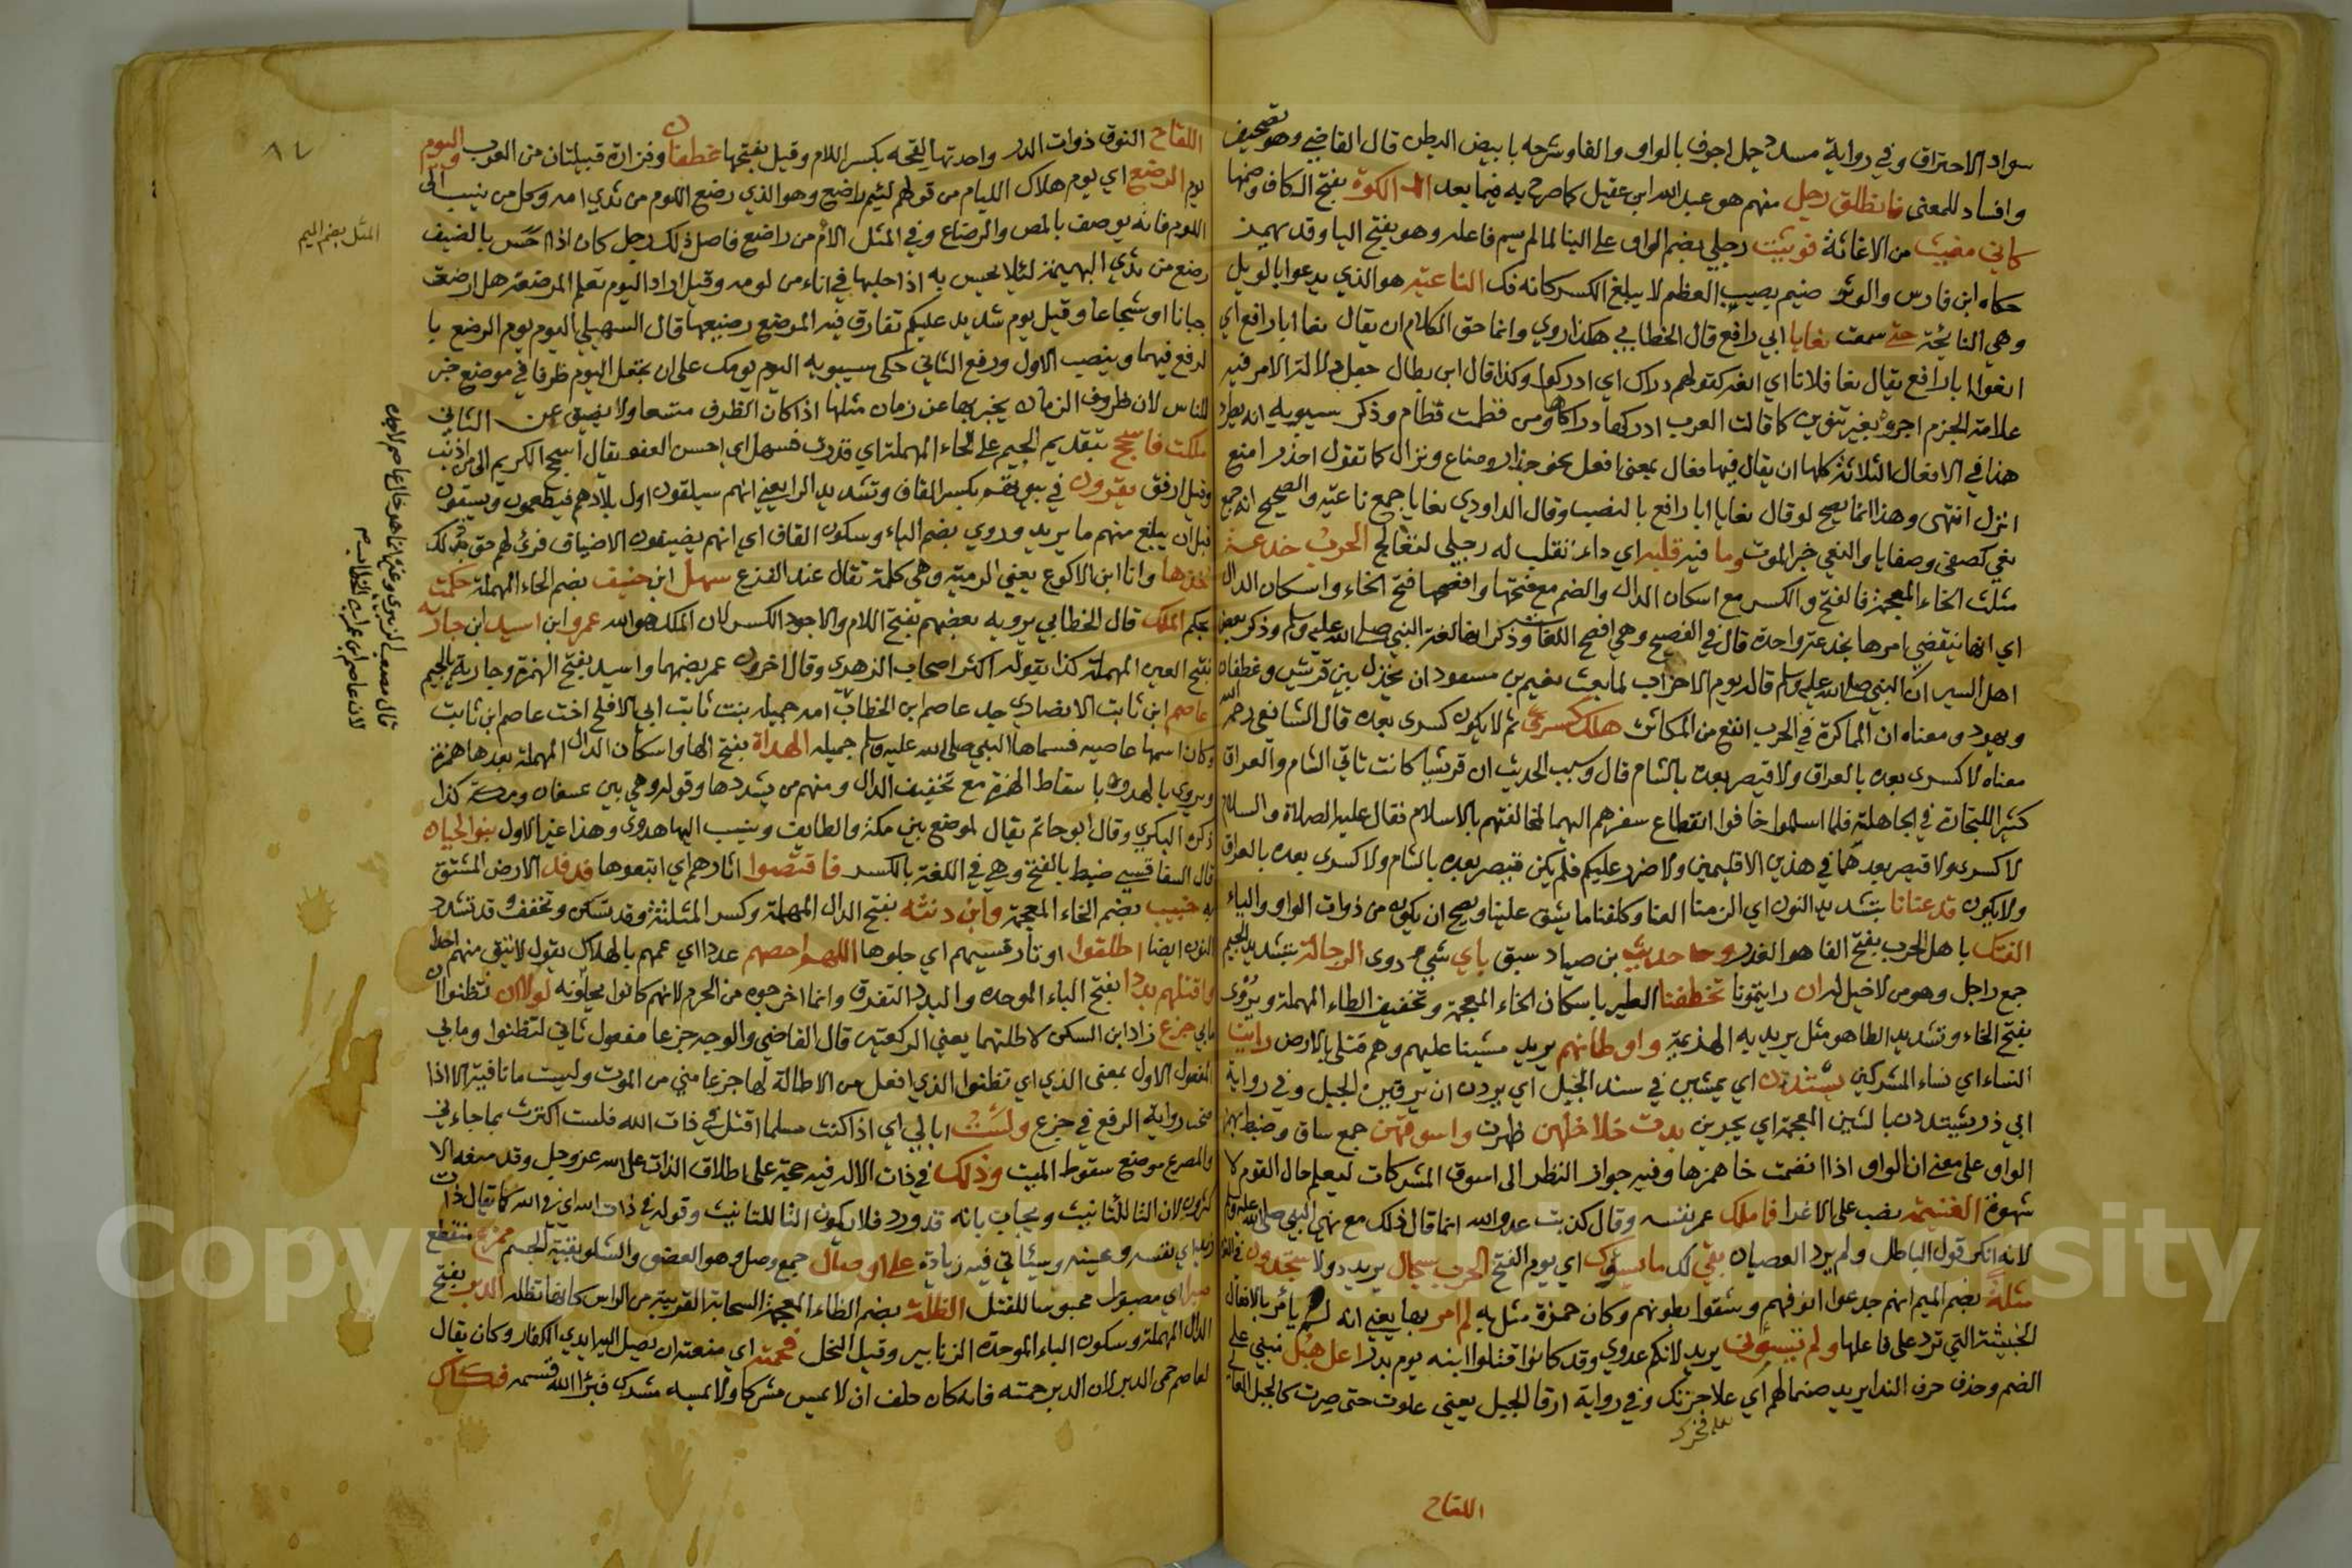 سواد الاحتراق وفي رواية مسدد جمل اجوف بالواو والفا وشرحه بابيض البطن قال القاضي وهو تصحيف
وافساد للمعنى فانطلق رجل منهم هو عبد الله ابن عقيل كما صرح به فيما بعد الكوة بفتح الكاف وضمها
كاني مغيث من الاغاثة فوثئت رجلي بضم الواو على البنا لما لم يسم فاعله وهو بفتح اليا وقد يهمز
حكاه ابن فارس والوثو ضيم يصيب العظم لا يبلغ الكسر كانه فك الناعيه هو الذي يدعوا بالويل
وهي النائحة حتى سمعت نعايا ابي رافع قال الخطابي هكذا روي وانما حق الكلام ان يقال نعا ابا رافع اي
انعوا ابا رافع يقال نعا فلانا اي انعه كقولهم دراك اي ادركوا وكذا قال ابن بطال جعل دلالة الامر فيه
علامة الجزم اجره بغير تنوين كما قالت العرب ادركها دراكها ومن فطمت فطام وذكر سيبويه انه يطرد
هذا في الافعال الثلاثة كلها ان يقال فيها فعال بمعنى افعل نحو حذار ومناع ونزال كما تقول احذر امنع
انزل انتهى وهذا انما يصح لو قال نعايا ابا رافع بالنصب وقال الداودي نعايا جمع ناعيه والصحيح انه جمع
نعي كصفي وصفايا والنعي خبر الموت وما فيه قلبه اي داء تقلب له رجلي لتعالج الحرب خدعة
مثلث الخاء المعجمة فالفتح والكسر مع اسكان الدال والضم مع فتحها وافصحها فتح الخاء واسكان الدال
اي انها ينقضي امرها بخدعة واحدة قال في الفصيح وهي افصح اللغات وذكر انها لغة النبي صلى الله عليه وسلم وذكر بعض
اهل السير ان النبي صلى الله عليه وسلم قاله يوم الاحزاب لما بعث نعيم بن مسعود ان يخذل بين قريش وغطفان
ويهود ومعناه ان المماكرة في الحرب انفع من المكاثرة هلك كسرى ثم لا يكون كسرى بعده قال الشافعي رحمه الله
معناه لا كسرى بعده بالعراق ولا قيصر بعده بالشام قال وسبب الحديث ان قريشا كانت تاتي الشام والعراق
كثيرا للتجارة في الجاهلية فلما اسلموا خافوا انقطاع سفرهم اليهما لمخالفتهم بالاسلام فقال عليه الصلاة والسلام
لا كسرى ولا قيصر بعدهما في هذين الاقليمين ولا ضرر عليكم فلم يكن قيصر بعده بالشام ولا كسرى بعده بالعراق
ولا يكون قد عنانا بتشديد النون اي الزمنا العنا وكلفنا ما يشق علينا ويصح ان يكون من ذوات الواو والياء
الفتك باهل الحرب بفتح الفا هو الغدر وحديث بن صياد سبق باي شي دوى الرجالة بتشديد الجيم
جمع راجل وهو من لا خيل له ان رايتمونا تخطفنا الطير باسكان الخاء المعجمة وتخفيف الطاء المهملة ويروى
بفتح الخاء وتشديد الطا هو مثل يريد به الهزيمة واوطانهم يريد مشينا عليهم وهم قتلى بالارض رايت
النساء اي نساء المشركين يشتددن اي يمشين في سند الجبل اي يردن ان يرقين الجبل وفي رواية
ابي ذر يشتددن بالشين المعجمة اي يجرين بدت خلاخلهن ظهرت واسوقهن جمع ساق وضبط بهمز
الواو على معنى ان الواو اذا انضمت جاز همزها وفيه جواز النظر الى اسوق المشركات ليعلم حال القوم لا
شهوة الغنيمة نصب على الاغرا فما ملك عمر نفسه وقال كذبت عدو الله انما قال ذلك مع نهي النبي صلى الله عليه وسلم
لانه انكر قول الباطل ولم يرد العصيان بقي لك ما يسوءك اي يوم الفتح الحرب سجال يريد دولا ستجدون في القوم
مثلة بضم الميم انهم جدعوا انوفهم وشقوا بطونهم وكان حمزة مثل به لم امر بها يعني انه لم يامر بالافعال
الخبيثة التي ترد على فاعلها ولم تسؤني يريد لانكم عدوي وقد كانوا قتلوا ابنه يوم بدر اعل هبل مبني على
الضم وحذف حرف الندا يريد صنما لهم اي علا حزبك وفي رواية ارقا الجبل يعني علوت حتى صرت كالجبل العالي
على فخرك
اللقاح
٨٤
اللقاح النوق ذوات الدر واحدتها لقحه بكسر اللام وقيل بفتحها غطفان وفزارة قبيلتان من العرب اليوم
يوم الرضع اي يوم هلاك الليام من قولهم لئيم راضع وهو الذي رضع اللوم من ثدي امه وكل من ينسب الى
اللوم فانه يوصف بالمص والرضاع وفي المثل الأم من راضع فاصل ذلك رجل كان اذا احس بالضيف
رضع من ثدي البهيمة لئلا يحس به اذا حلبها في اناء من لومه وقيل اراد اليوم تعلم المرضعة هل ارضعت
جبانا او شجاعا وقيل يوم شديد عليكم تفارق فيه المرضع رضيعها قال السهيلي اليوم يوم الرضع با
لرفع فيهما وبنصب الاول ورفع الثاني حكى سيبويه اليوم يومك على ان تجعل اليوم ظرفا في موضع خبر
للناس لان ظروف الزمان يخبر بها عن زمان مثلها اذا كان الظرف متسعا ولا يضيق عن الثاني
ملكت فاسجح بتقديم الجيم على الحاء المهملة اي قدرت فسهل اي احسن العفو يقال اسجح الكريم الى من اذنب
وقيل ارفق يقرون في بيوتهم بكسر القاف وتشديد الرا يعني انهم سيلقون اول بلادهم فيطعمون ويسقون
قبل ان يبلغ منهم ما يريد وروي بضم الياء وسكون القاف اي انهم يضيفون الاضياف فرق لهم حق ذلك
خذها وانا ابن الاكوع يعني الرمية وهي كلمة تقال عند الفزع سهل ابن حنيف بضم الحاء المهملة حكمت
بحكم الملك قال الخطابي يرويه بعضهم بفتح اللام والاجود الكسر لان الملك هو الله عمرو ابن اسيد ابن جارية
بفتح العين المهملة كذا يقوله اكثر اصحاب الزهري وقال اخرون عمر بضمها واسيد بفتح الهمزة وجارية بالجيم
عاصم ابن ثابت الانصاري جد عاصم ابن الخطاب امه جميله بنت ثابت ابي الافلح اخت عاصم ابن ثابت
وكان اسمها عاصيه فسماها النبي صلى الله عليه وسلم جميله الهداة بفتح الها واسكان الدال المهملة بعدها همزة
ويروى بالهدة باسقاط الهمزة مع تخفيف الدال ومنهم من يشددها وقوله وهي بين عسفان ومكة كذا
ذكره البكري وقال ابو حاتم يقال لموضع بين مكة والطايف وينسب اليها هدوي وهذا غير الاول بنو لحيان
قال السفاقسي ضبط بالفتح وهي في اللغة بالكسر فاقتصوا اثارهم اي اتبعوها فدفد الارض المشتق
به خبيب بضم الخاء المعجمة وابن دثنه بفتح الدال المهملة وكسر المثلثة وقد تسكن وتخفف وقد تشدد
النون ايضا اطلقوا اوتار قسيهم اي حلوها اللهم احصهم عددا اي عمهم بالهلاك يقول لا تبق منهم احدا
واقتلهم بددا بفتح الباء الموحدة والبدد التفرق وانما اخرجوه من الحرم لانهم كانوا يحلونه لولا ان تظنوا ان
مابي جزع زاد ابن السكن لاطلتهما يعني الركعتين قال القاضي والوجه جزعا مفعول ثاني لتظنوا ومابي
المفعول الاول بمعنى الذي اي تظنوا الذي افعل من الاطالة لها جزعا مني من الموت وليست ما نافية الا اذا
صحت رواية الرفع في جزع ولست ابالي اي اذا كنت مسلما اقتل في ذات الله فلست اكترث بما جاءني
والمصرع موضع سقوط الميت وذلك في ذات الاله فيه حجة على اطلاق الذات على الله عز وجل وقد منعه الا
كثرون لان التا للتانيث ويجاب بانه قد ورد فلا يكون التا للتانيث وقوله في ذات الله اي في الله كما تقال ذات
زيد اي نفسه وعينه وسياتي فيه زيادة على اوصال جمع وصل وهو العضو والشلو بقية الجسم ممزع منقطع
صبرا اي مصبورا محبوسا للقتل الظلة بضم الظاء المعجمة السحابة القريبة من الراس كانها تظله الدبر بفتح
الدال المهملة وسكون الباء الموحدة الزنابير وقيل النحل فحمته اي منعته ان يصل اليه ايدي الكفار وكان يقال
لعاصم حمى الدبر لان الدبر حمته فانه كان حلف ان لا يمس مشركا ولا يمسه مشرك فبرا الله قسمه فكاك
المثل بضم الميم
قال مصعب الزبيري وغيره انما هو خال عاصم لا جده
لان عاصم ابن عمر ابن الخطاب